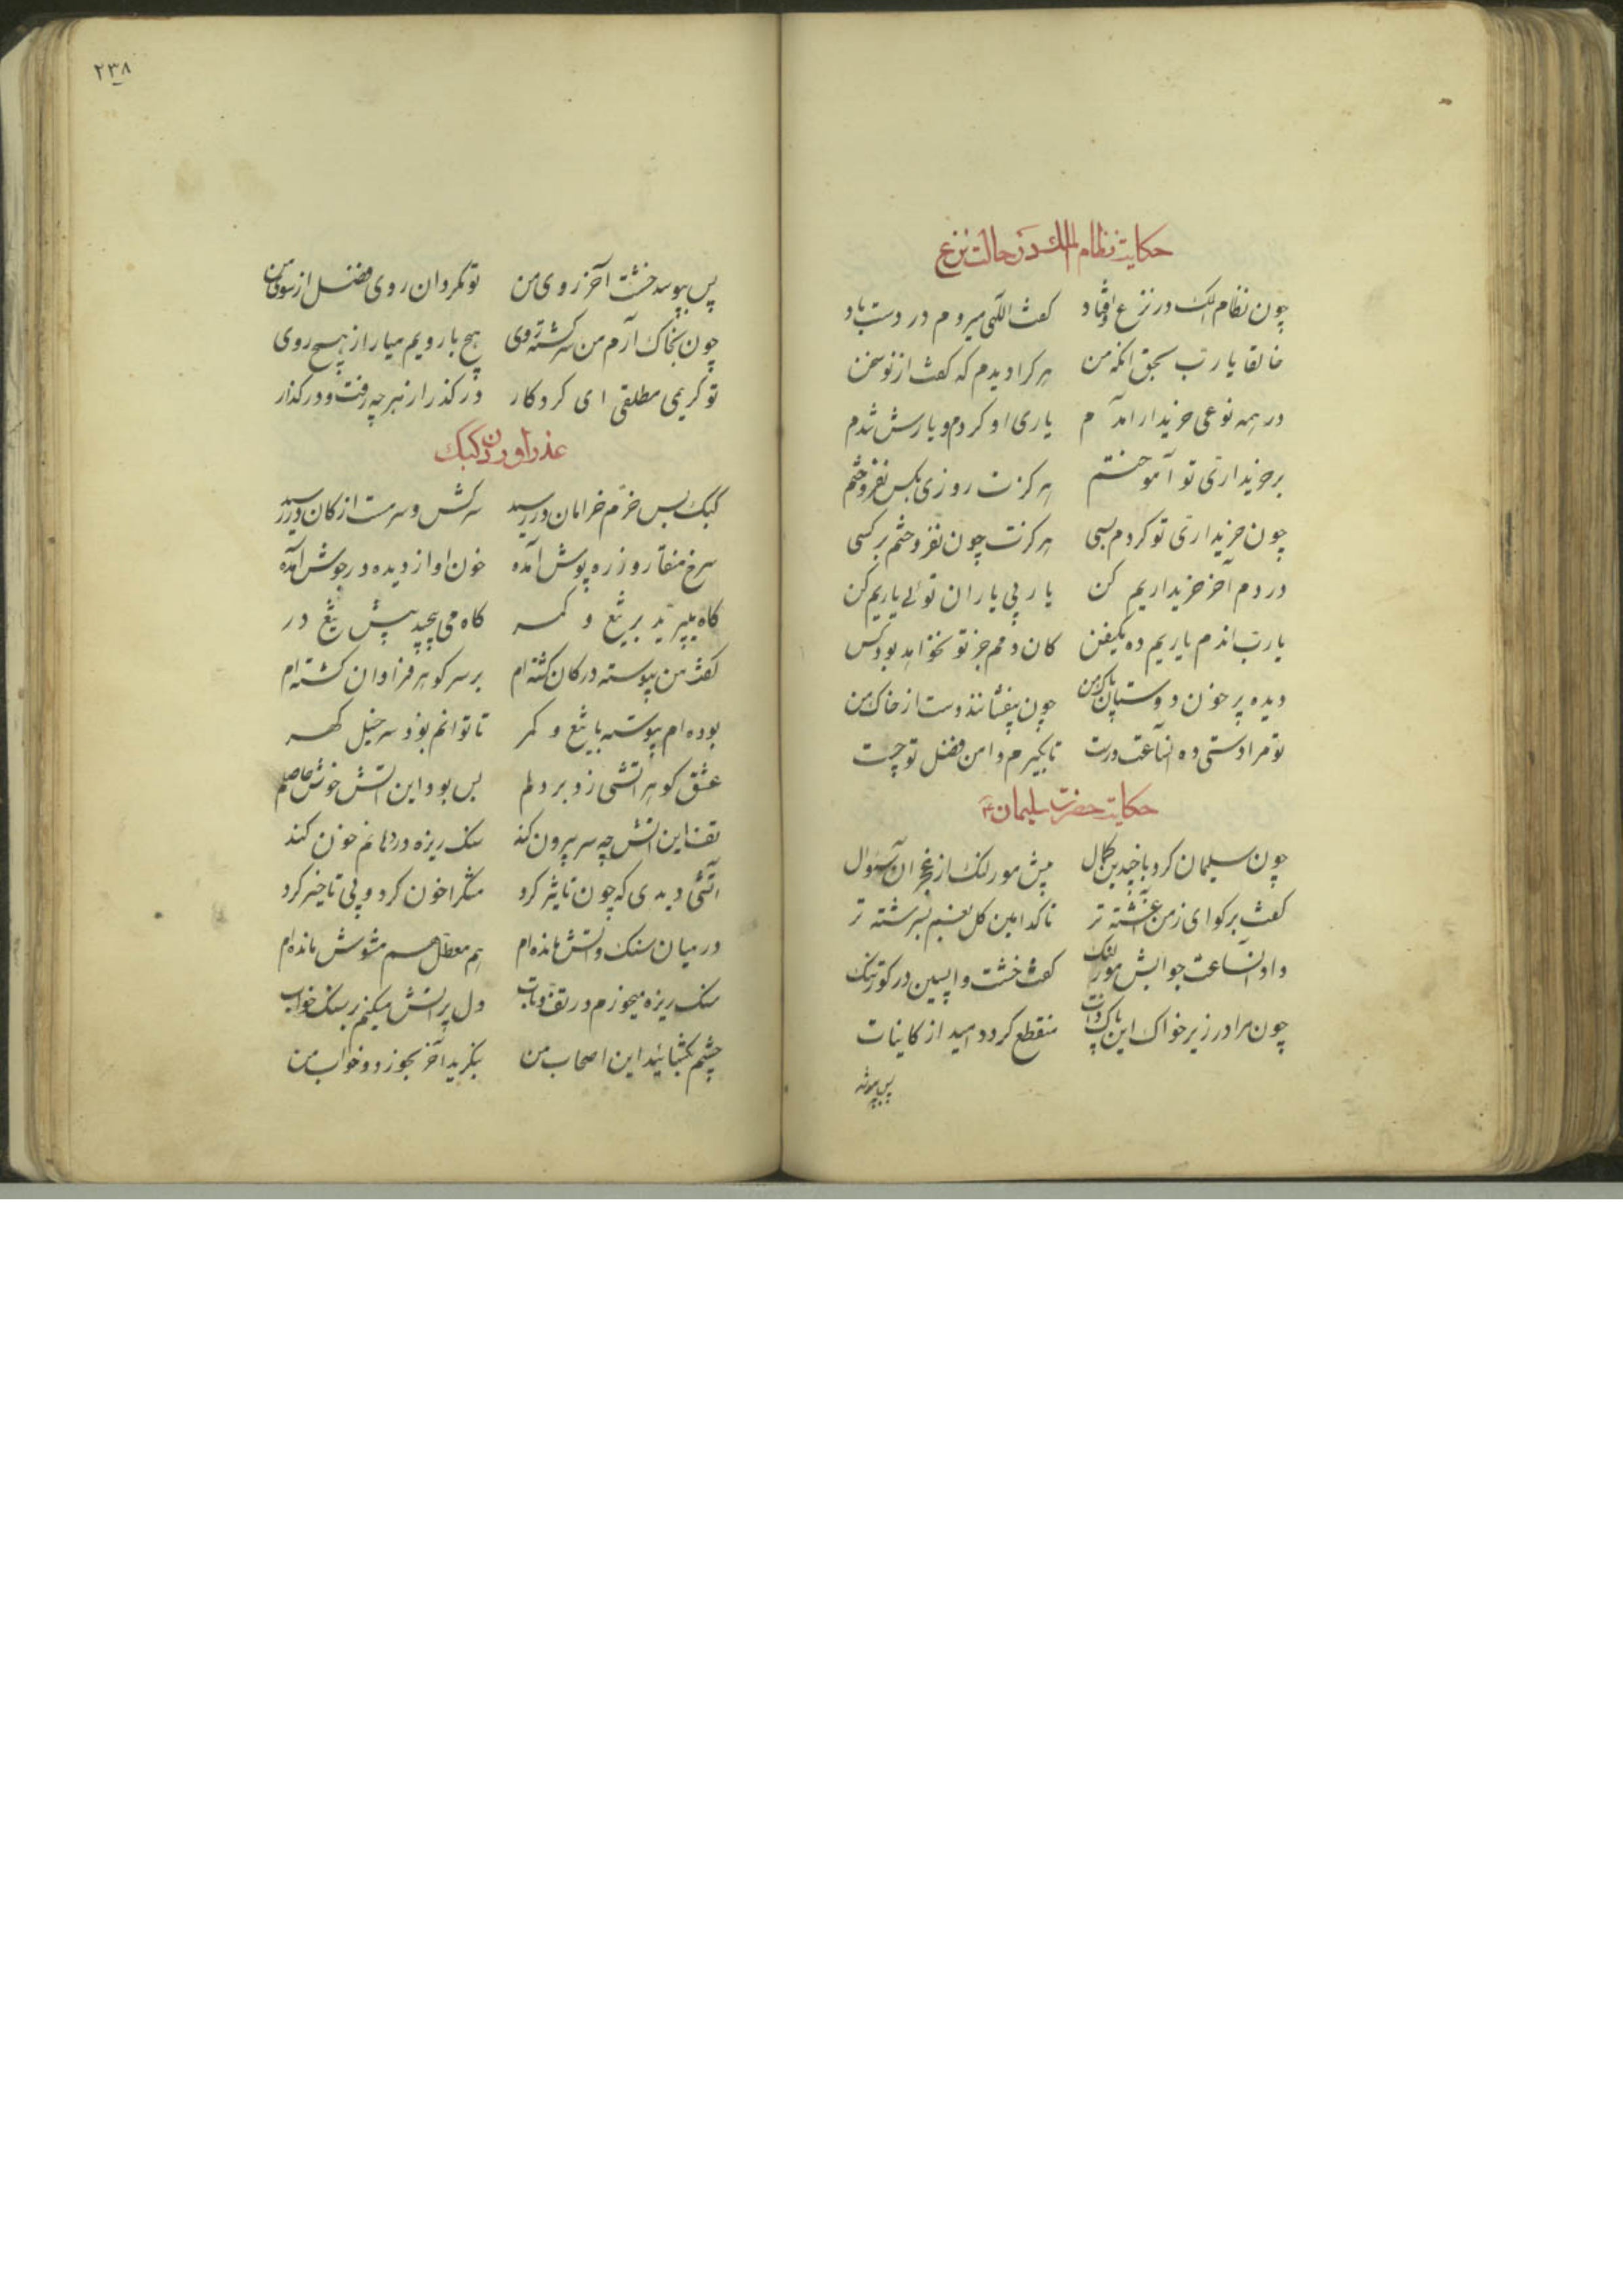 حکایت نظام الملک در حالت نزع
چون نظام الملک در نزع اوفتاد کفت الٓهی میروم در دست باد
خالقا یا رب بحق انکه من هر کرا دیدم که کفت از تو سخن
در همه نوعی خریدار امدم یاری او کردم و یارش شدم
بر خریداری تو آموختم هرکزت روزی بکس نفروختم
چون خریداری تو کردم بسی هرکزت چون نفروختم بر کسی
در دم آخر خریداریم کن یار بی یاران توئی یاریم کن
یا رب اندم یاریم ده یکنفس کان دمم جز تو نخواهد بود کس
دیده پر خون دوستان پاک من چون بیفشانند دست از خاک من
تو مرا دستی ده انساعت درست تا بکیرم دامن فضل تو چست
حکایت حضرت سلیمان ع
چون سلیمان کرد با چندین کمال پیش مور لنک از عجز ان سؤال
کفت برکو ای ز من آغشته تر تا کدامین کل بغم بسرشته تر
داد انساعت جوابش مور لنک کفت خشت واپسین در کور تنک
چون مرا در زیر خواک این پاک ذات منقطع کردد امید از کاینات
پس بپوشد
٢٣٨
پس بپوسد خشت آخر روی من تو مکردان روی فضل از سوی من
چون بخاک آرم من سرکشته روی هیچ با رویم میار از هیچ روی
تو کریمی مطلقی ای کردکار در کذر از هر چه رفت و در کذار
عذر اوردن کبک
کبک بس خرّم خرامان در رسید سرکش و سرمست از کان در رسید
سرخ منقار و زره پوش آمده خون او از دیده در جوش آمده
کاه میپرید بر تیغ و کمر کاه می پیچید پیش تیغ در
کفت من پیوسته در کان کشته ام بر سر کوهر فراوان کشته ام
بوده ام پیوسته با تیغ و کمر تا توانم بود سرخیل کهر
عشق کوهر اتشی زد بر دلم بس بود این اتش خوش حاصلم
تف این اتش چه سر بیرون کند سنک ریزه در دهانم خون کند
اتشی دیدی که چون تاثیر کرد سنک را خون کرد و بی تاخیر کرد
در میان سنک و اتش مانده ام هم معطّل هم مشوش مانده ام
سنک ریزه میخورم در تف و تاب دل پر اتش میکنم بر سنک خواب
چشم بکشائید این اصحاب من بنکرید آخر بخورد و خواب من